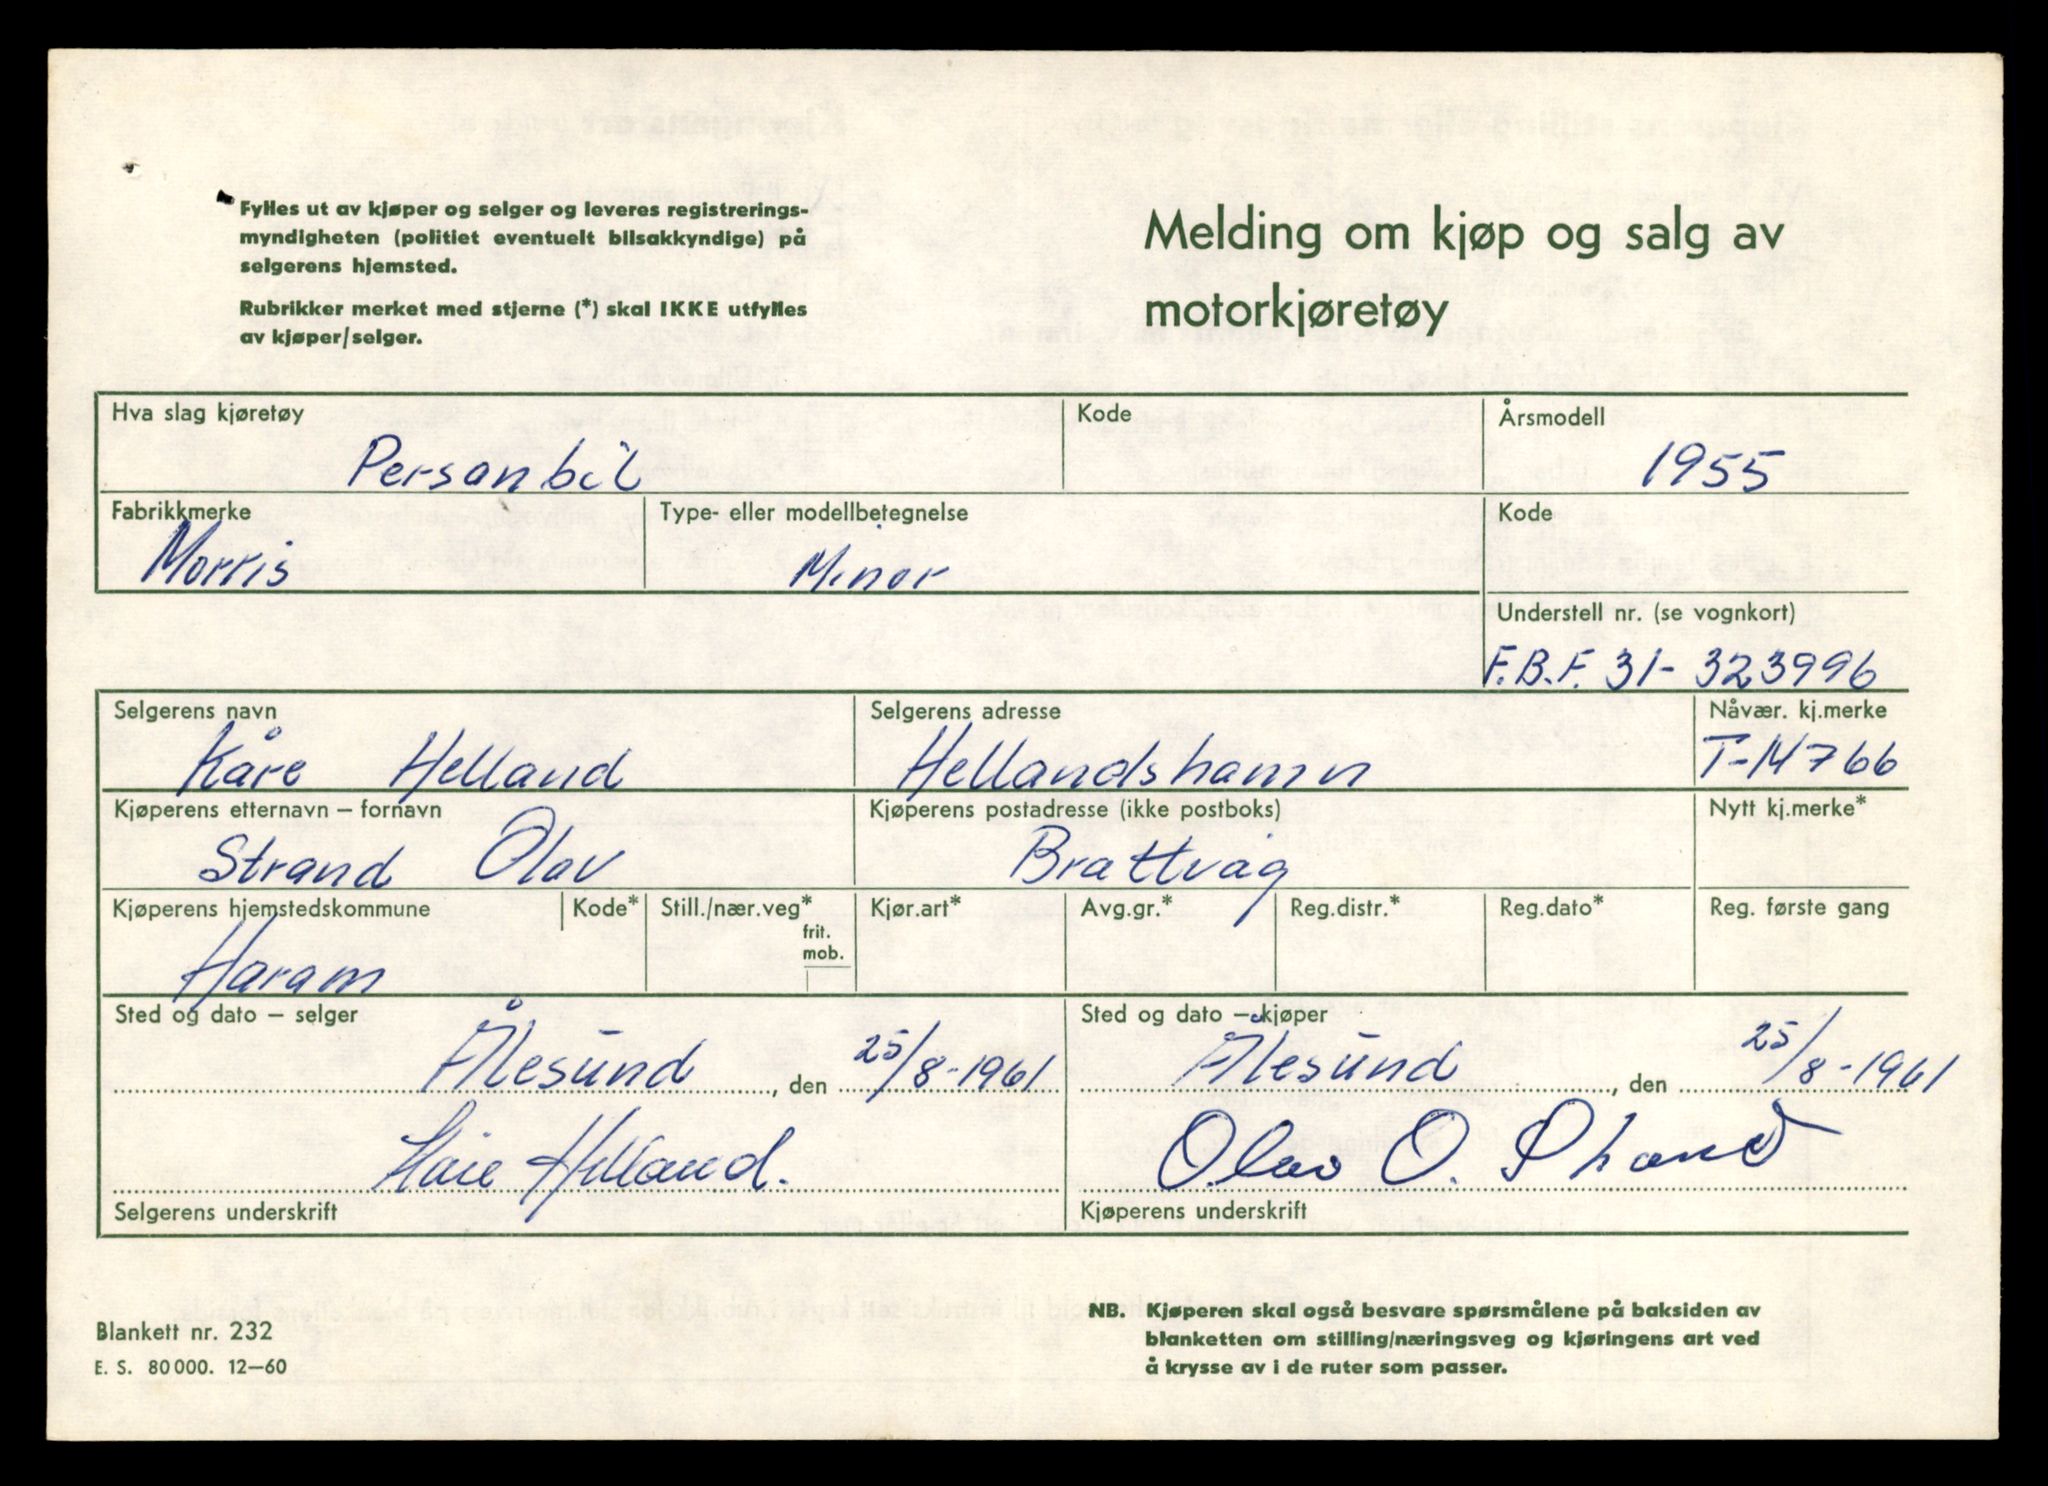 Fylles ut av kjøper og selger og leveres registrerings-
myndigheten (politiet eventuelt bilsakkyndige) på
selgerens hjemsted.
Rubrikker merket med stjerne (*) skal IKKE utfylles
av kjøper/selger.
Melding om kjøp og salg av
motorkjøretøy
Hva slag kjøretøy Kode Årsmodell
Personbil 1955
Fabrikkmerke Type- eller modellbetegnelse Kode
Morris Minor
Understell nr. (se vognkort)
F.B.F. 31- 323996
Selgerens navn Selgerens adresse Nåvær. kj.merke
Kåre Helland Hellandshamn T-14766
Kjøperens etternavn – fornavn Kjøperens postadresse (ikke postboks) Nytt kj.merke*
Strand Olav Brattvåg
Kjøperens hjemstedskommune Kode* Still./nær.veg* Kjør.art* Avg.gr.* Reg.distr.* Reg.dato* Reg. første gang
frit.
mob.
Haram
Sted og dato – selger Sted og dato – kjøper
Ålesund, den 25/8-1961 Ålesund, den 25/8-1961
Kåre Helland. Olav O. Strand
Selgerens underskrift Kjøperens underskrift
Blankett nr. 232
E. S. 80 000. 12–60
NB. Kjøperen skal også besvare spørsmålene på baksiden av
blanketten om stilling/næringsveg og kjøringens art ved
å krysse av i de ruter som passer.